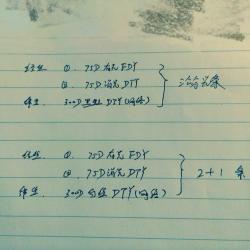 经丝 ①. 75D 有光 FDY
②. 75D 消光 DTY
纬丝 300D DTY(网络)
经丝 ①. 75D 有光 FDY
② 75D 消光 DTY
纬丝 300D DTY(网络)
2+1